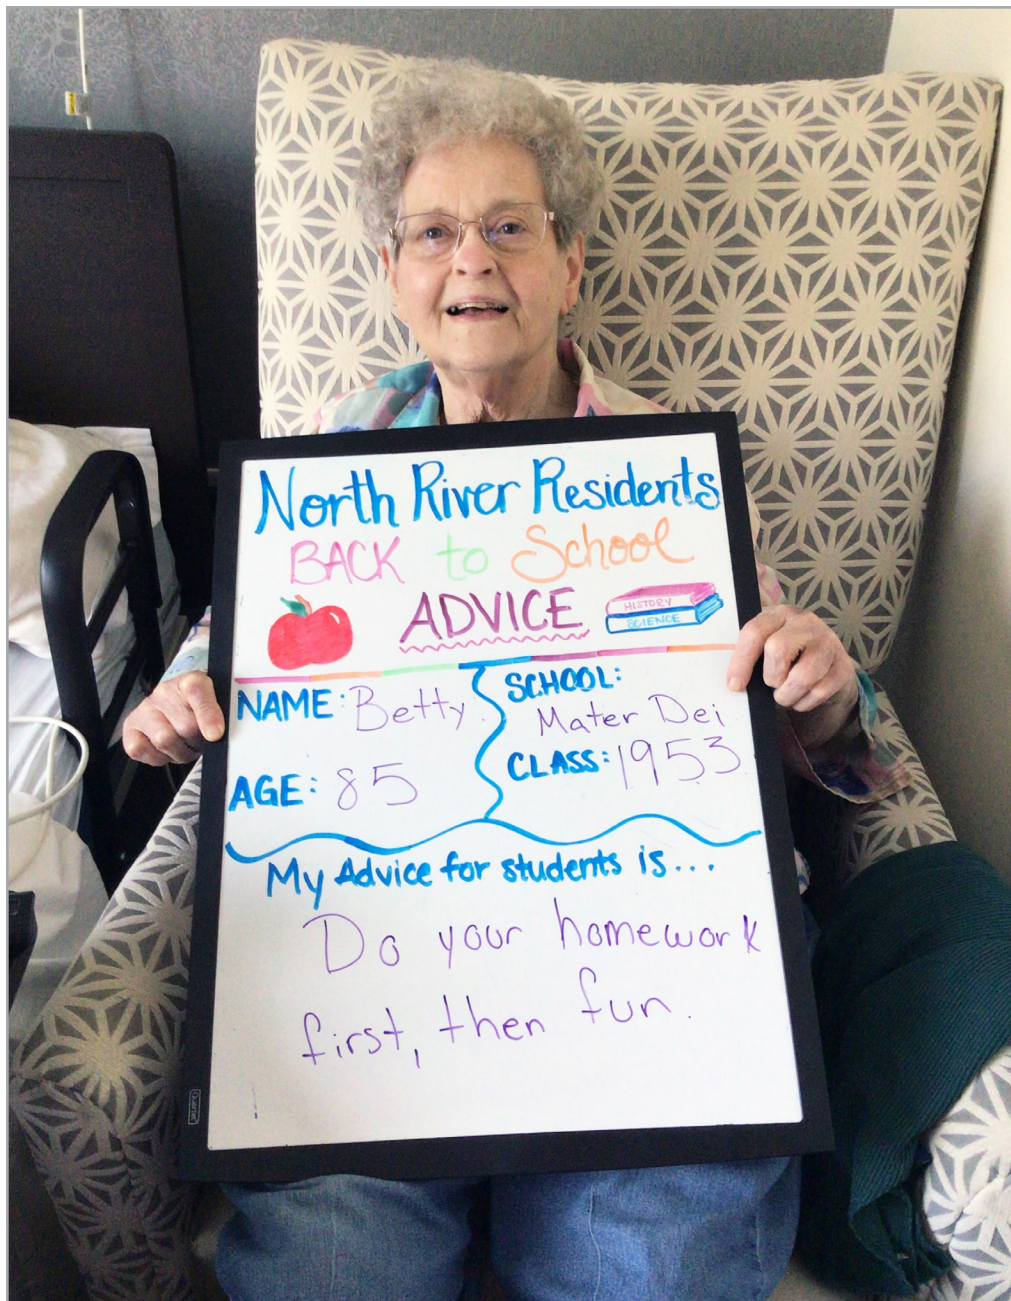 North River Residents
BACK to School
ADVICE
HISTORY
SCIENCE
NAME: Betty
AGE: 85
SCHOOL:
Mater Dei
CLASS: 1953
My Advice for students is...
Do your homework
first, then fun.